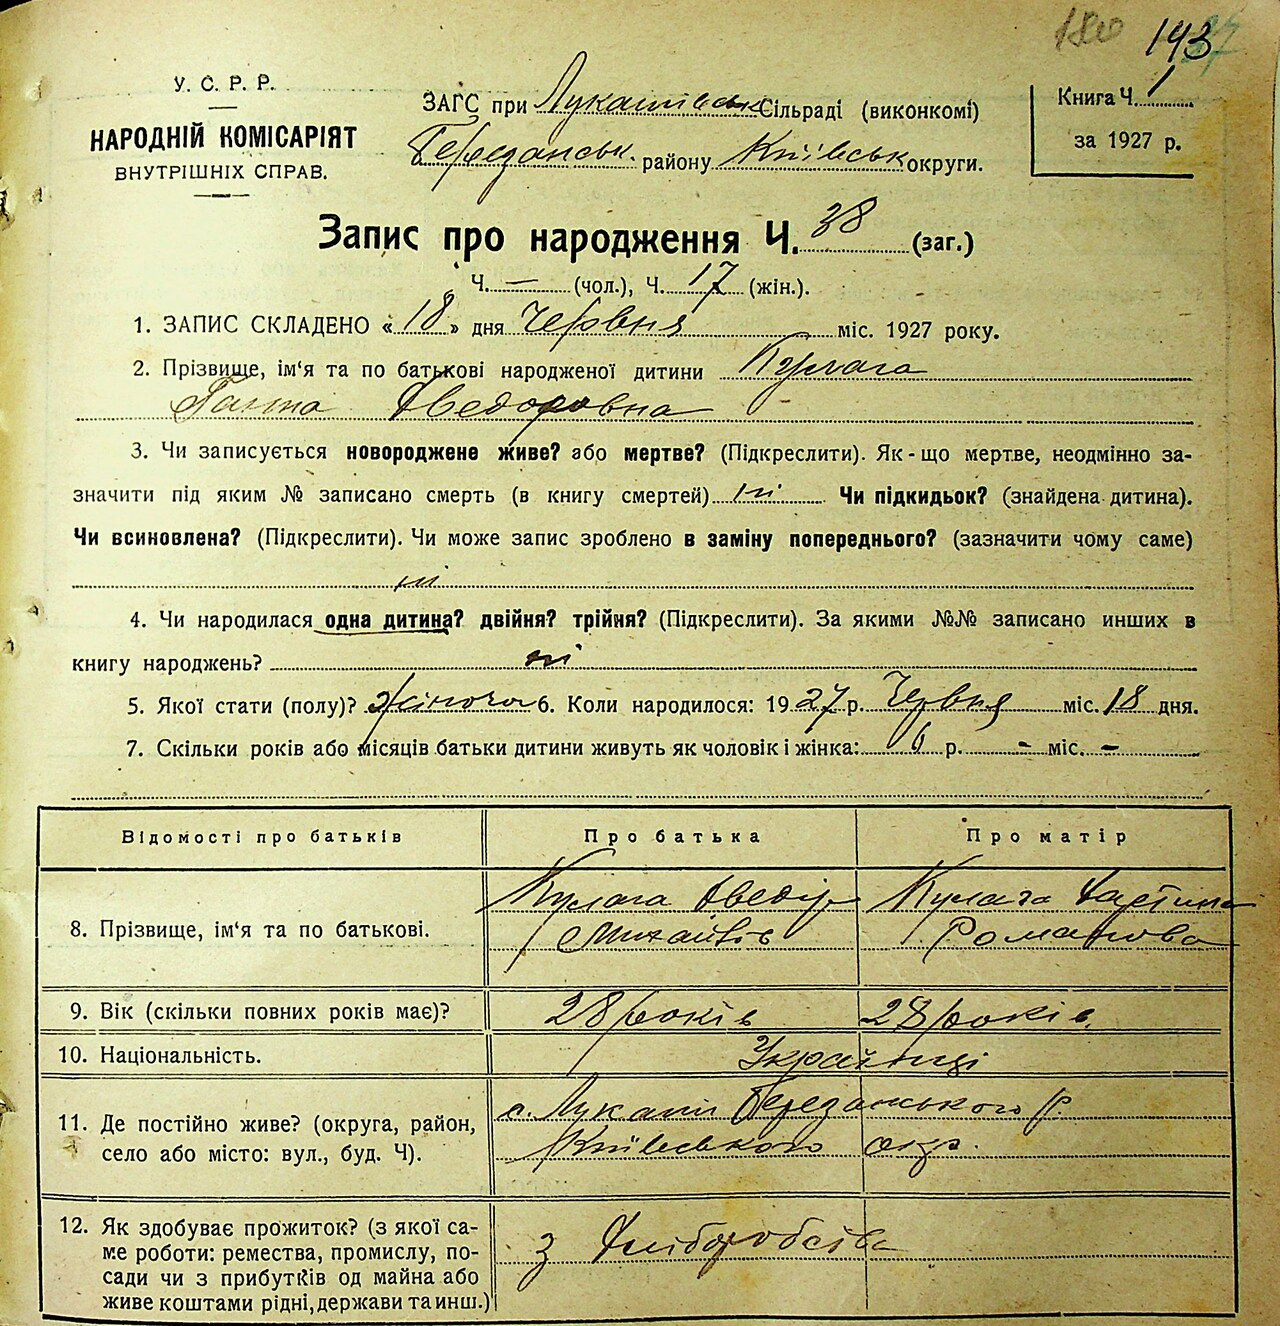 180 143
У. С. Р. Р.
НАРОДНІЙ КОМІСАРІЯТ
ВНУТРІШНІХ СПРАВ.
ЗАГС при Лукашівськ Сільраді (виконкомі)
Березанськ. району Київськ округи.
Книга Ч. 1
за 1927 р.
Запис про народження Ч. 38 (заг.)
Ч. — (чол.), Ч. 17 (жін.).
1. ЗАПИС СКЛАДЕНО « 18 » дня Червня міс. 1927 року.
2. Прізвище, ім‘я та по батькові народженої дитини Кулага
Ганна Хведоровна
3. Чи записується новороджене живе? або мертве? (Підкреслити). Як-що мертве, неодмінно за-
значити під яким № записано смерть (в книгу смертей) ні Чи підкидьок? (знайдена дитина).
Чи всиновлена? (Підкреслити). Чи може запис зроблено в заміну попереднього? (зазначити чому саме)
ні
4. Чи народилася одна дитина? двійня? трійня? (Підкреслити). За якими №№ записано инших в
книгу народжень? ні
5. Якої стати (полу)? жіноча 6. Коли народилося: 1927 р. Червня міс. 18 дня.
7. Скільки років або місяців батьки дитини живуть як чоловік і жінка: 6 р. - міс. -
Відомості про батьків Про батька Про матір
8. Прізвище, ім‘я та по батькові.
Кулага Хведір
Михайлів
Кулага Хвстина
Романова
9. Вік (скільки повних років має)? 28 років 28 років.
10. Національність. Українці
11. Де постійно живе? (округа, район,
село або місто: вул., буд. Ч).
с. Лукаші Березанського р.
Київського окр.
12. Як здобуває прожиток? (з якої са-
ме роботи: ремества, промислу, по-
сади чи з прибутків од майна або
живе коштами рідні, держави та инш.)
з Хліборобства